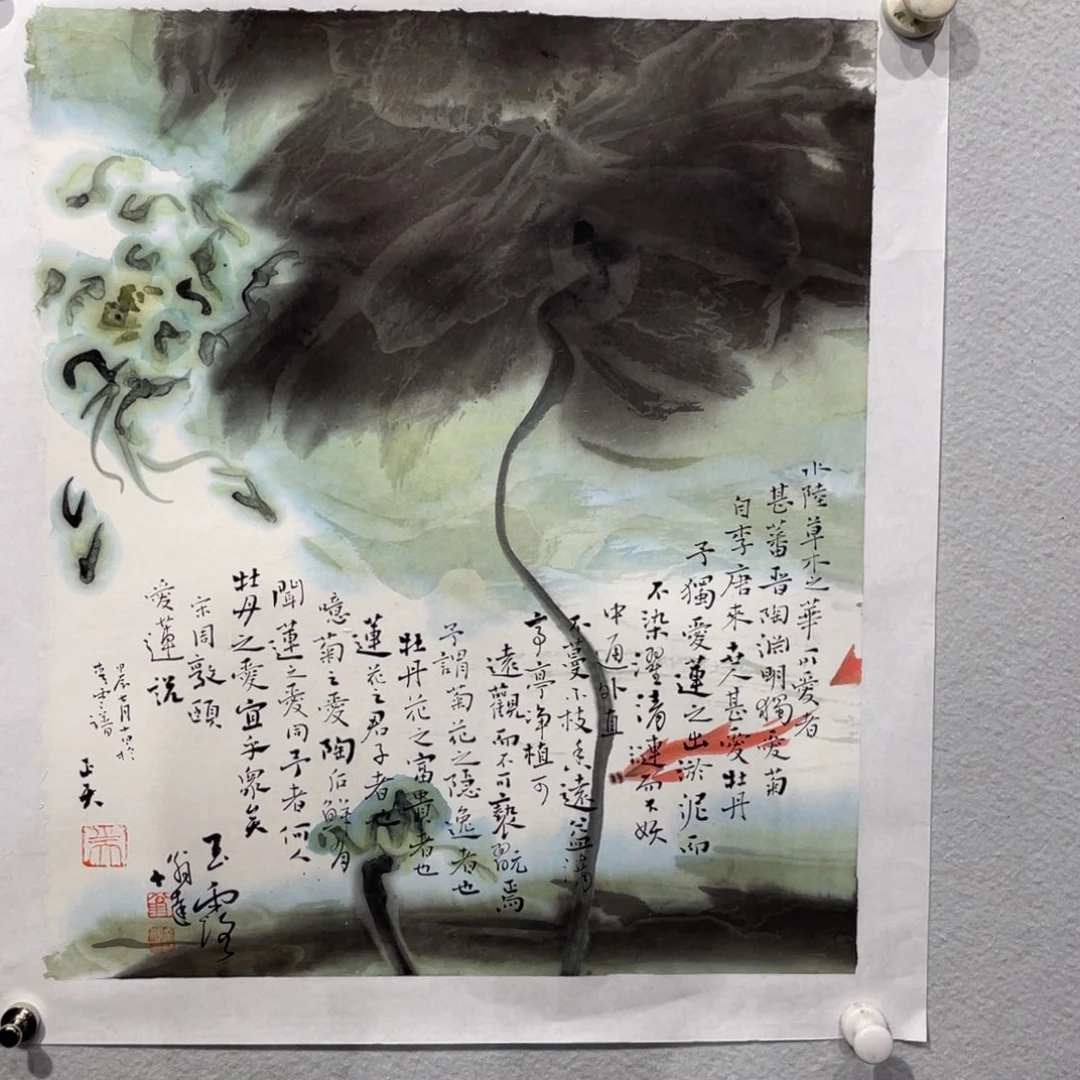 水陸草木之華可愛者
甚蕃晋陶渊明獨愛菊
自李唐來世人甚愛牡丹
予獨愛蓮之出淤泥而
不染濯清漣而不妖
中通外直
不蔓不枝香遠益清
亭亭净植可
遠觀而不可褻翫焉
予謂菊花之隐逸者也
牡丹花之富貴者也
蓮花之君子者也
噫菊之愛陶后鮮有
聞蓮之愛同予者何人
牡丹之愛宜乎衆矣
宋周敦頤
愛蓮説
甲辰七月
正天